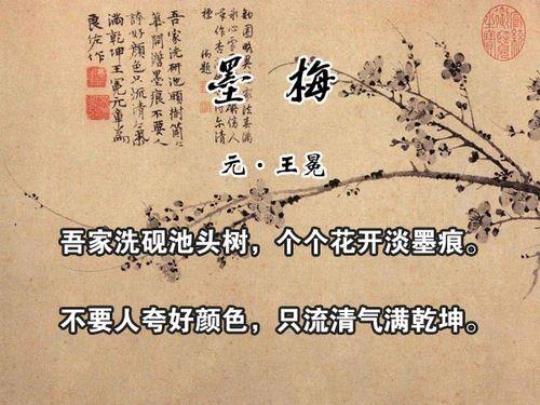 吾家洗研池頭樹箇箇
華開澹墨痕不要人
誇好顏色只流清气
滿乾坤王冕元章為
良佐作
墨 梅
元·王冕
吾家洗砚池头树，个个花开淡墨痕。
不要人夸好颜色，只流清气满乾坤。